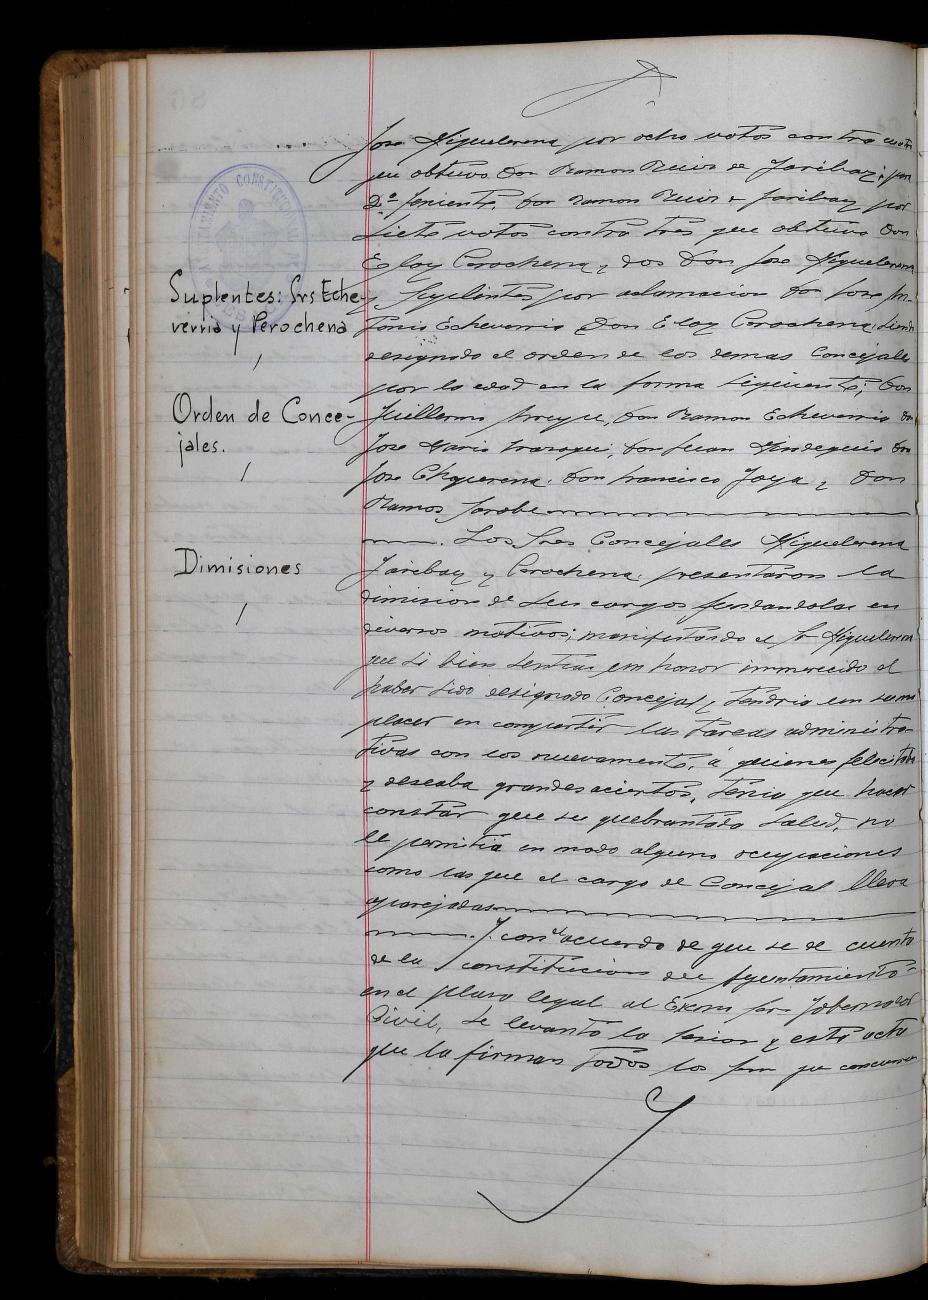 Jose Higuelerena por ocho votos contra cuatro
que obtuvo Don Ramon Ruiz de Garibay; por
2º teniente, Don Ramon Ruiz de Garibay por
siete votos contra tres que obtuvo Don
Eloy Perochena, y dos Don Jose Higuelerena
y Suplentes por aclamacion Don Jose An-
tonio Echeverria Don Eloy Perochena; siendo
designado el orden de los demas Concejales
por la edad en la forma siguiente; Don
Guillermo Don Ramon Echeverria Don
Jose Maria Don Juan Don
Jose Don Francisco Goya y Don
Ramon
Los Sres Concejales Higuelerena
Garibay y Perochena presentaron la
dimision de sus cargos fundandolas en
diversos motivos; manifestando el Sr Higuelerena
que si bien sentia un honor inmerecido el
haber sido designado Concejal y tendria un sumo
placer en compartir las tareas administra-
tivas con los nuevamente, á quienes felicitaba
y deseaba grandes aciertos, tenia que hacer
constar que su quebrantada salud, no
le permitia en modo alguno ocupaciones
como las que el cargo de Concejal lleva
aparejadas
Y con el acuerdo de que se de cuenta
de la constitucion del Ayuntamiento
en el plazo legal al Excmo Sor Gobernador
Civil, se levantó la sesion y esta acta
que la firman todos los Sres que concurren
Suplentes: Srs Eche-
verria y Perochena
Orden de Conce-
jales.
Dimisiones
AYUNTAMIENTO CONSTITUCIONAL DE